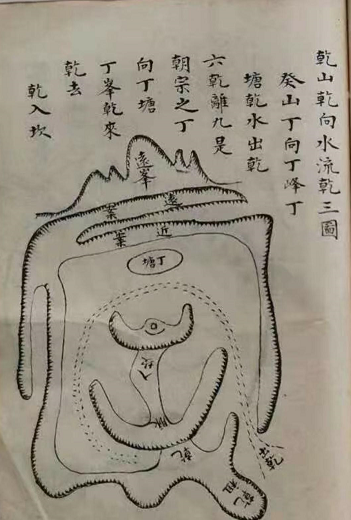 乾山乾向水流乾三圖
癸山丁向丁峰丁
塘乾水出乾
六乾離九是
朝宗之丁
向丁塘
丁峯乾來
乾去
乾入坎
遠峯
遠案
近案
丁塘
入坎
脉
乾